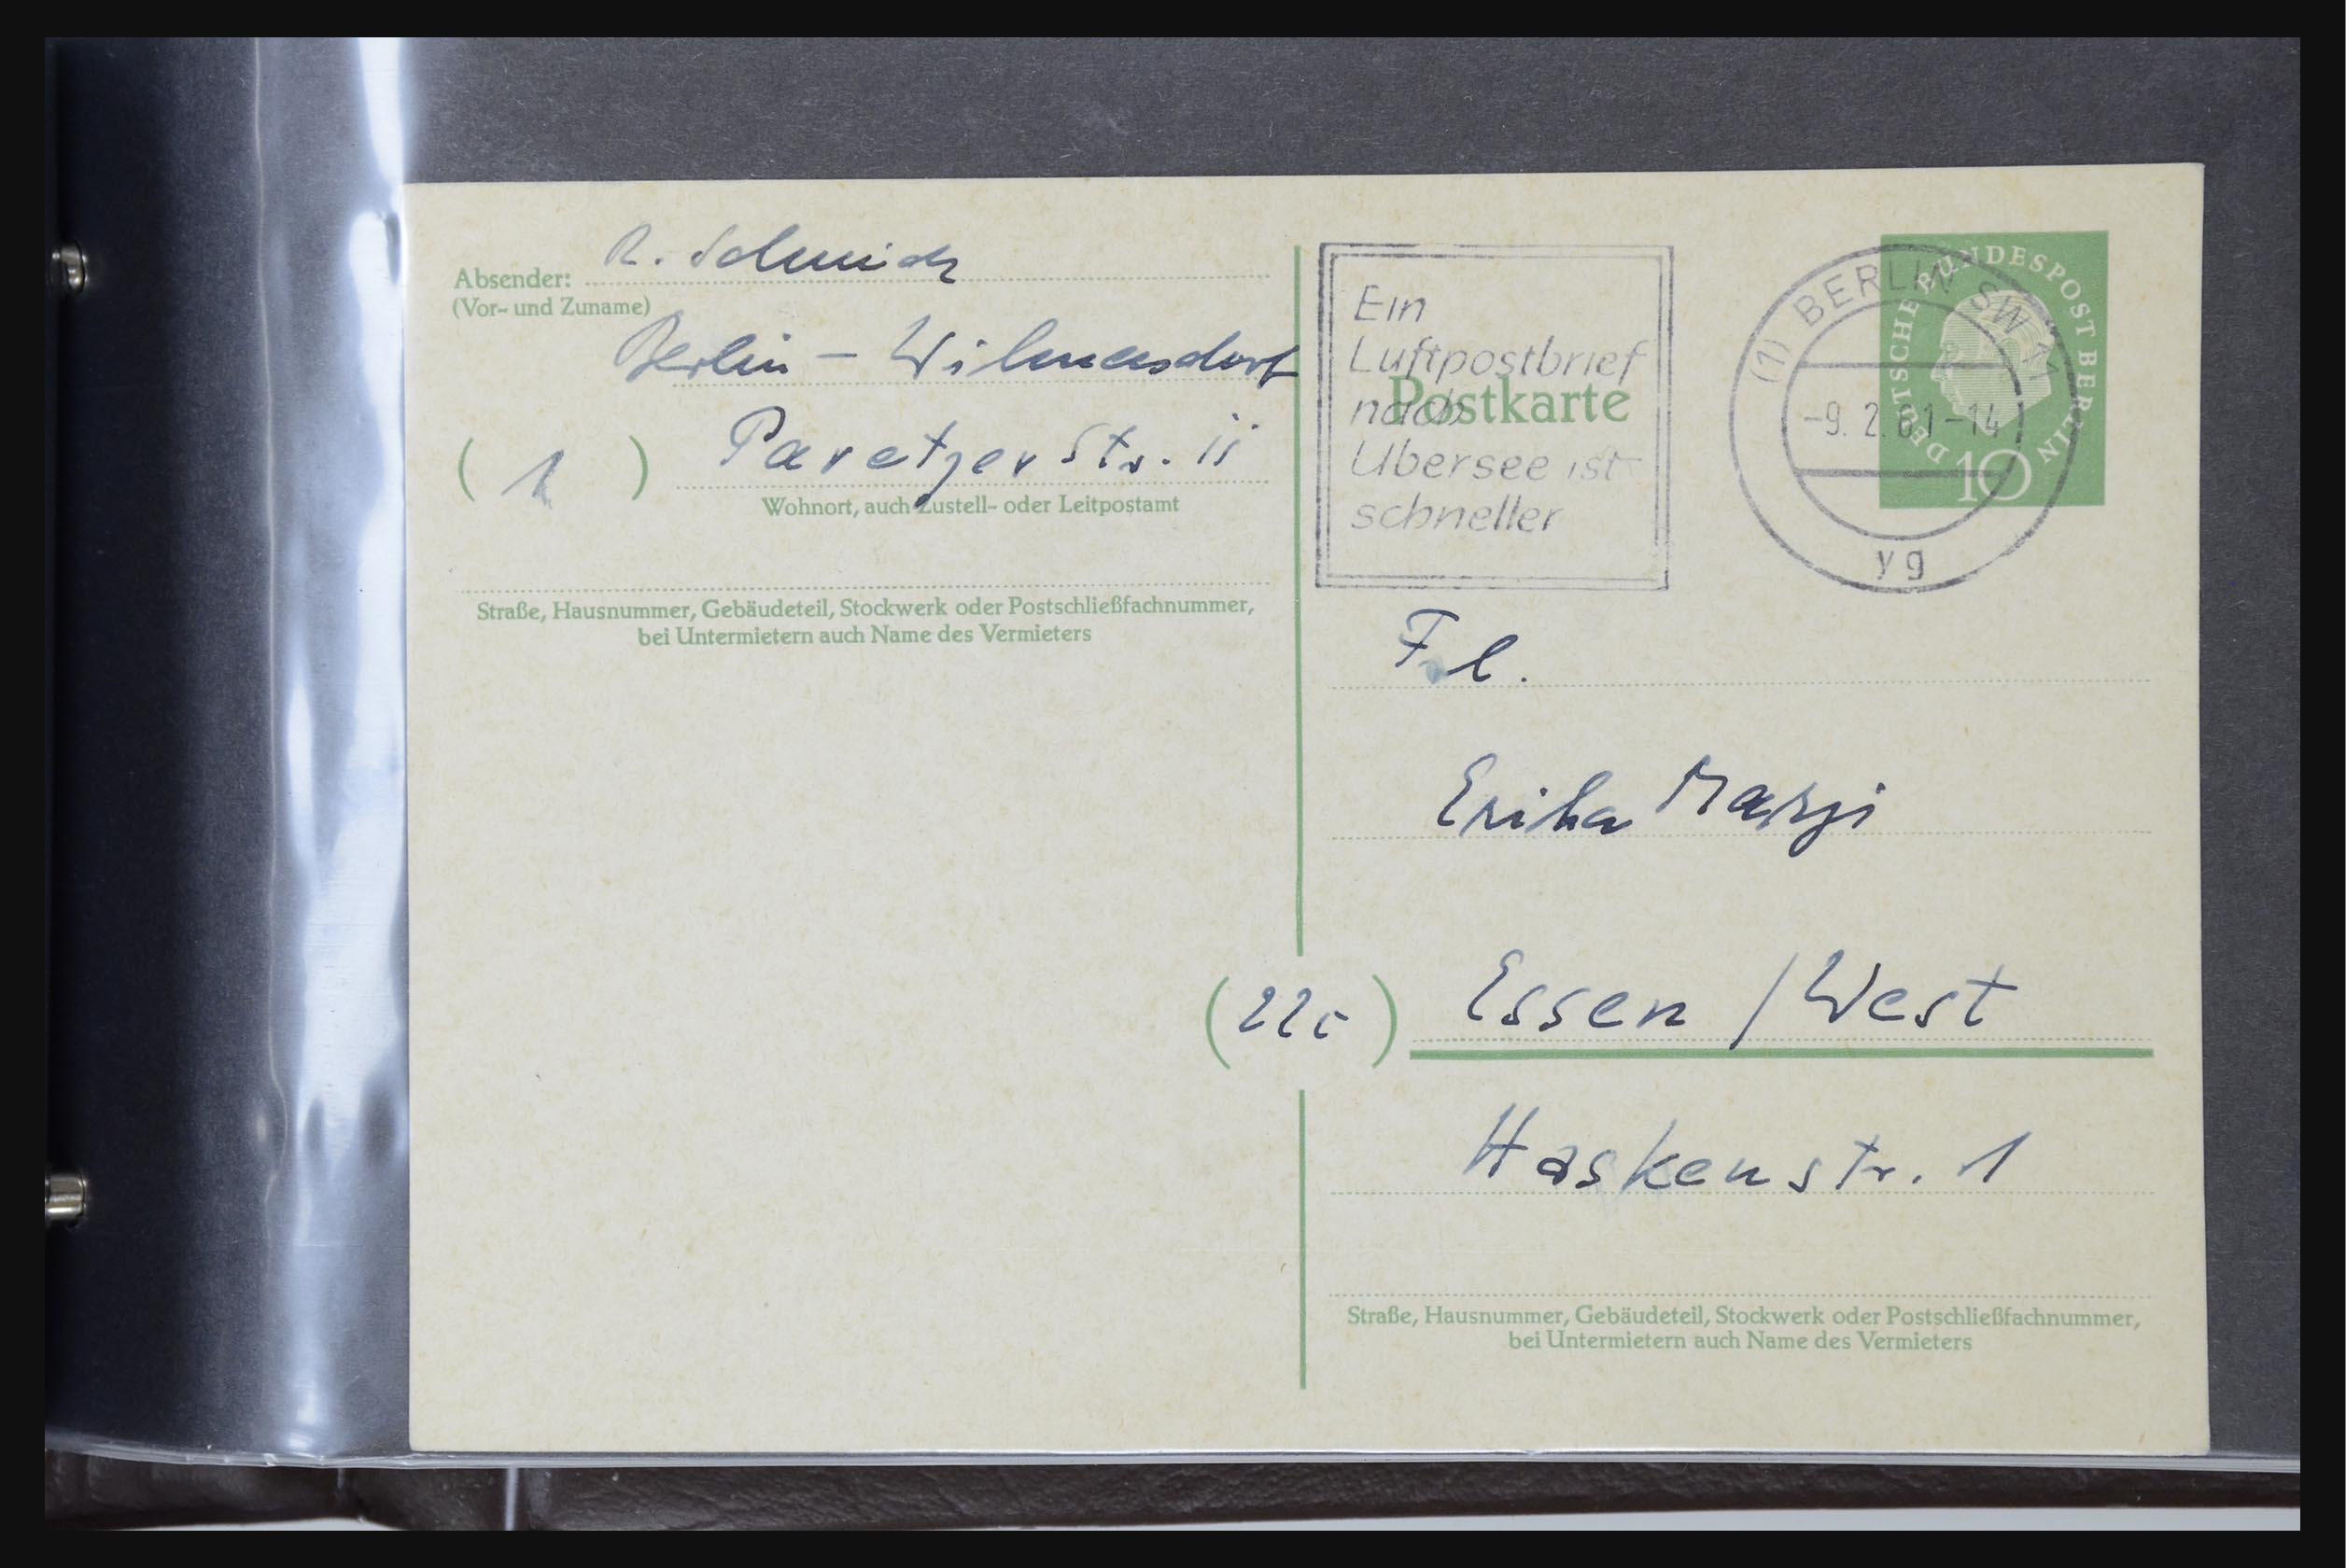 Absender: R. Schmidt
(Vor- und Zuname)
Berlin - Wilmersdorf
( 1 ) Paretzer Str. 11
Wohnort, auch Zustell- oder Leitpostamt
Straße, Hausnummer, Gebäudeteil, Stockwerk oder Postschließfachnummer,
bei Untermietern auch Name des Vermieters
Ein
Luftpostbrief
nach
Übersee ist
schneller
Postkarte
(1) BERLIN SW 11
-9. 2. 61-14
yg
DEUTSCHE BUNDESPOST BERLIN
10
Frl.
Erika
(22c) Essen / West
Haskenstr. 1
Straße, Hausnummer, Gebäudeteil, Stockwerk oder Postschließfachnummer,
bei Untermietern auch Name des Vermieters